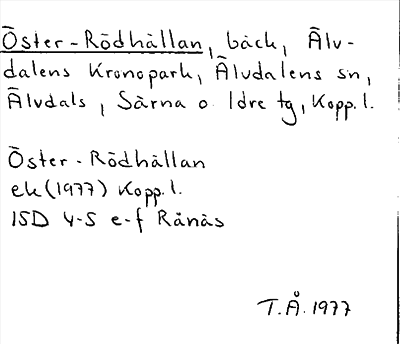 Öster-Rödhållan, bäck, Älv-
dalens Kronopark, Älvdalens sn,
Älvdals, Särna o Idre tg, Kopp.l.
Öster-Rödhållan
ek (1977) Kopp.l.
15D 4-5 e-f Rånäs
T.Å. 1977